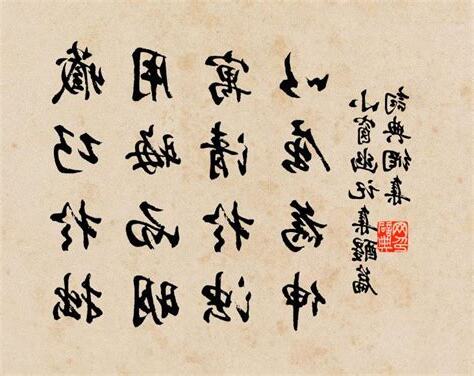 藏巧於拙
用晦而明
寓清於浊
以屈為伸
小窗幽記集醒篇
詞典網集